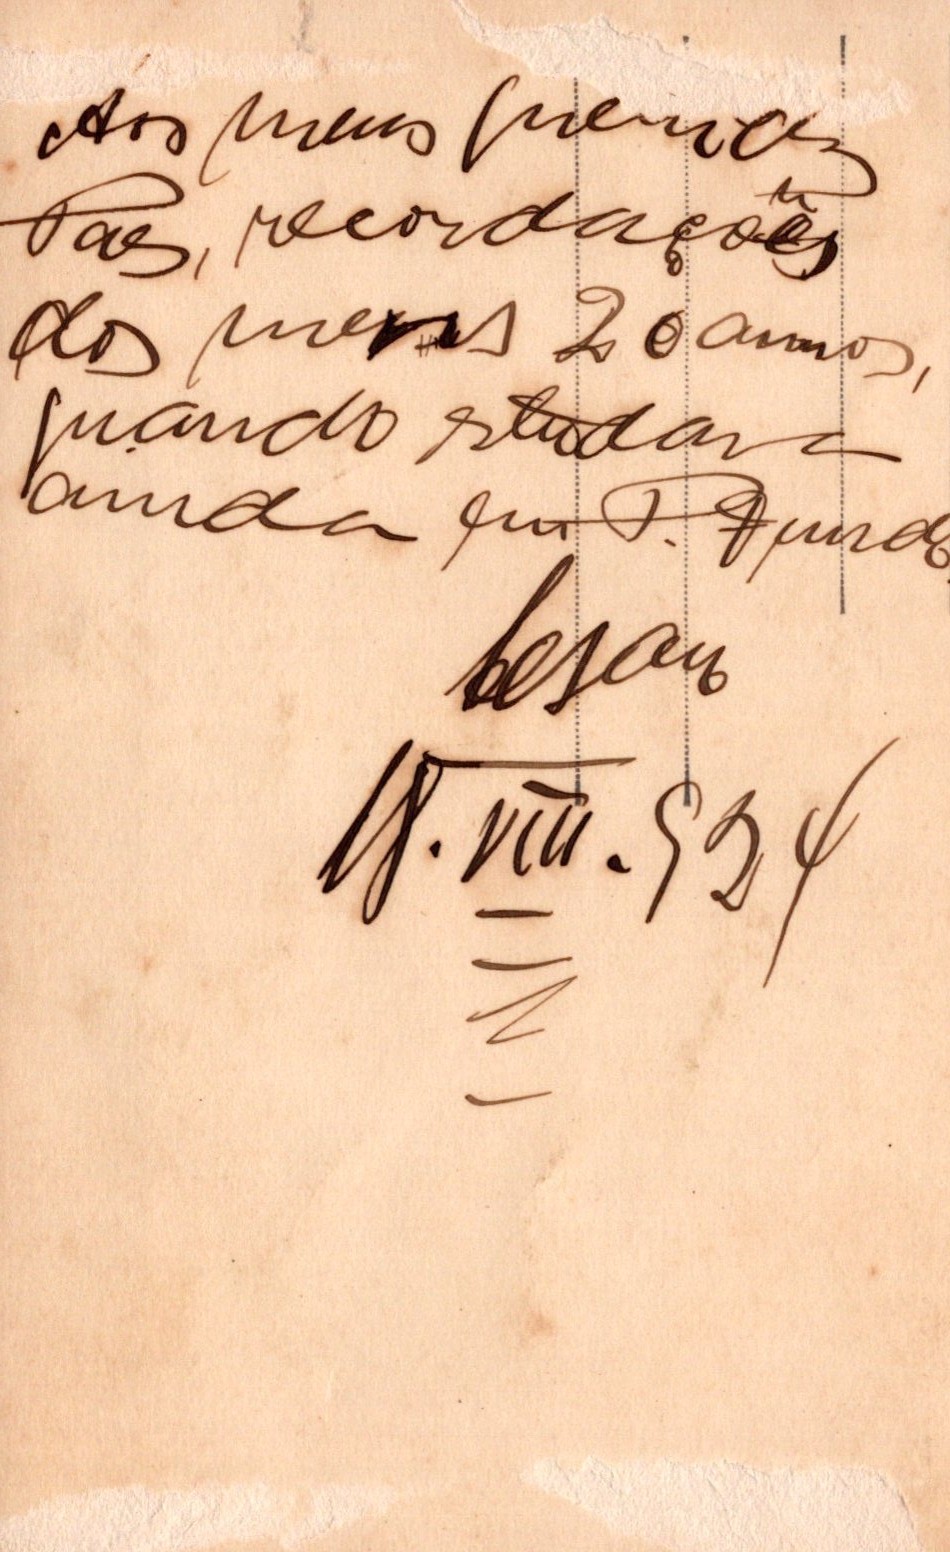 Aos meus queridos
Paes, recordações
dos meus 20 annos,
quando estudava
ainda em P. Fundo.
Cesar
18.VIII.924